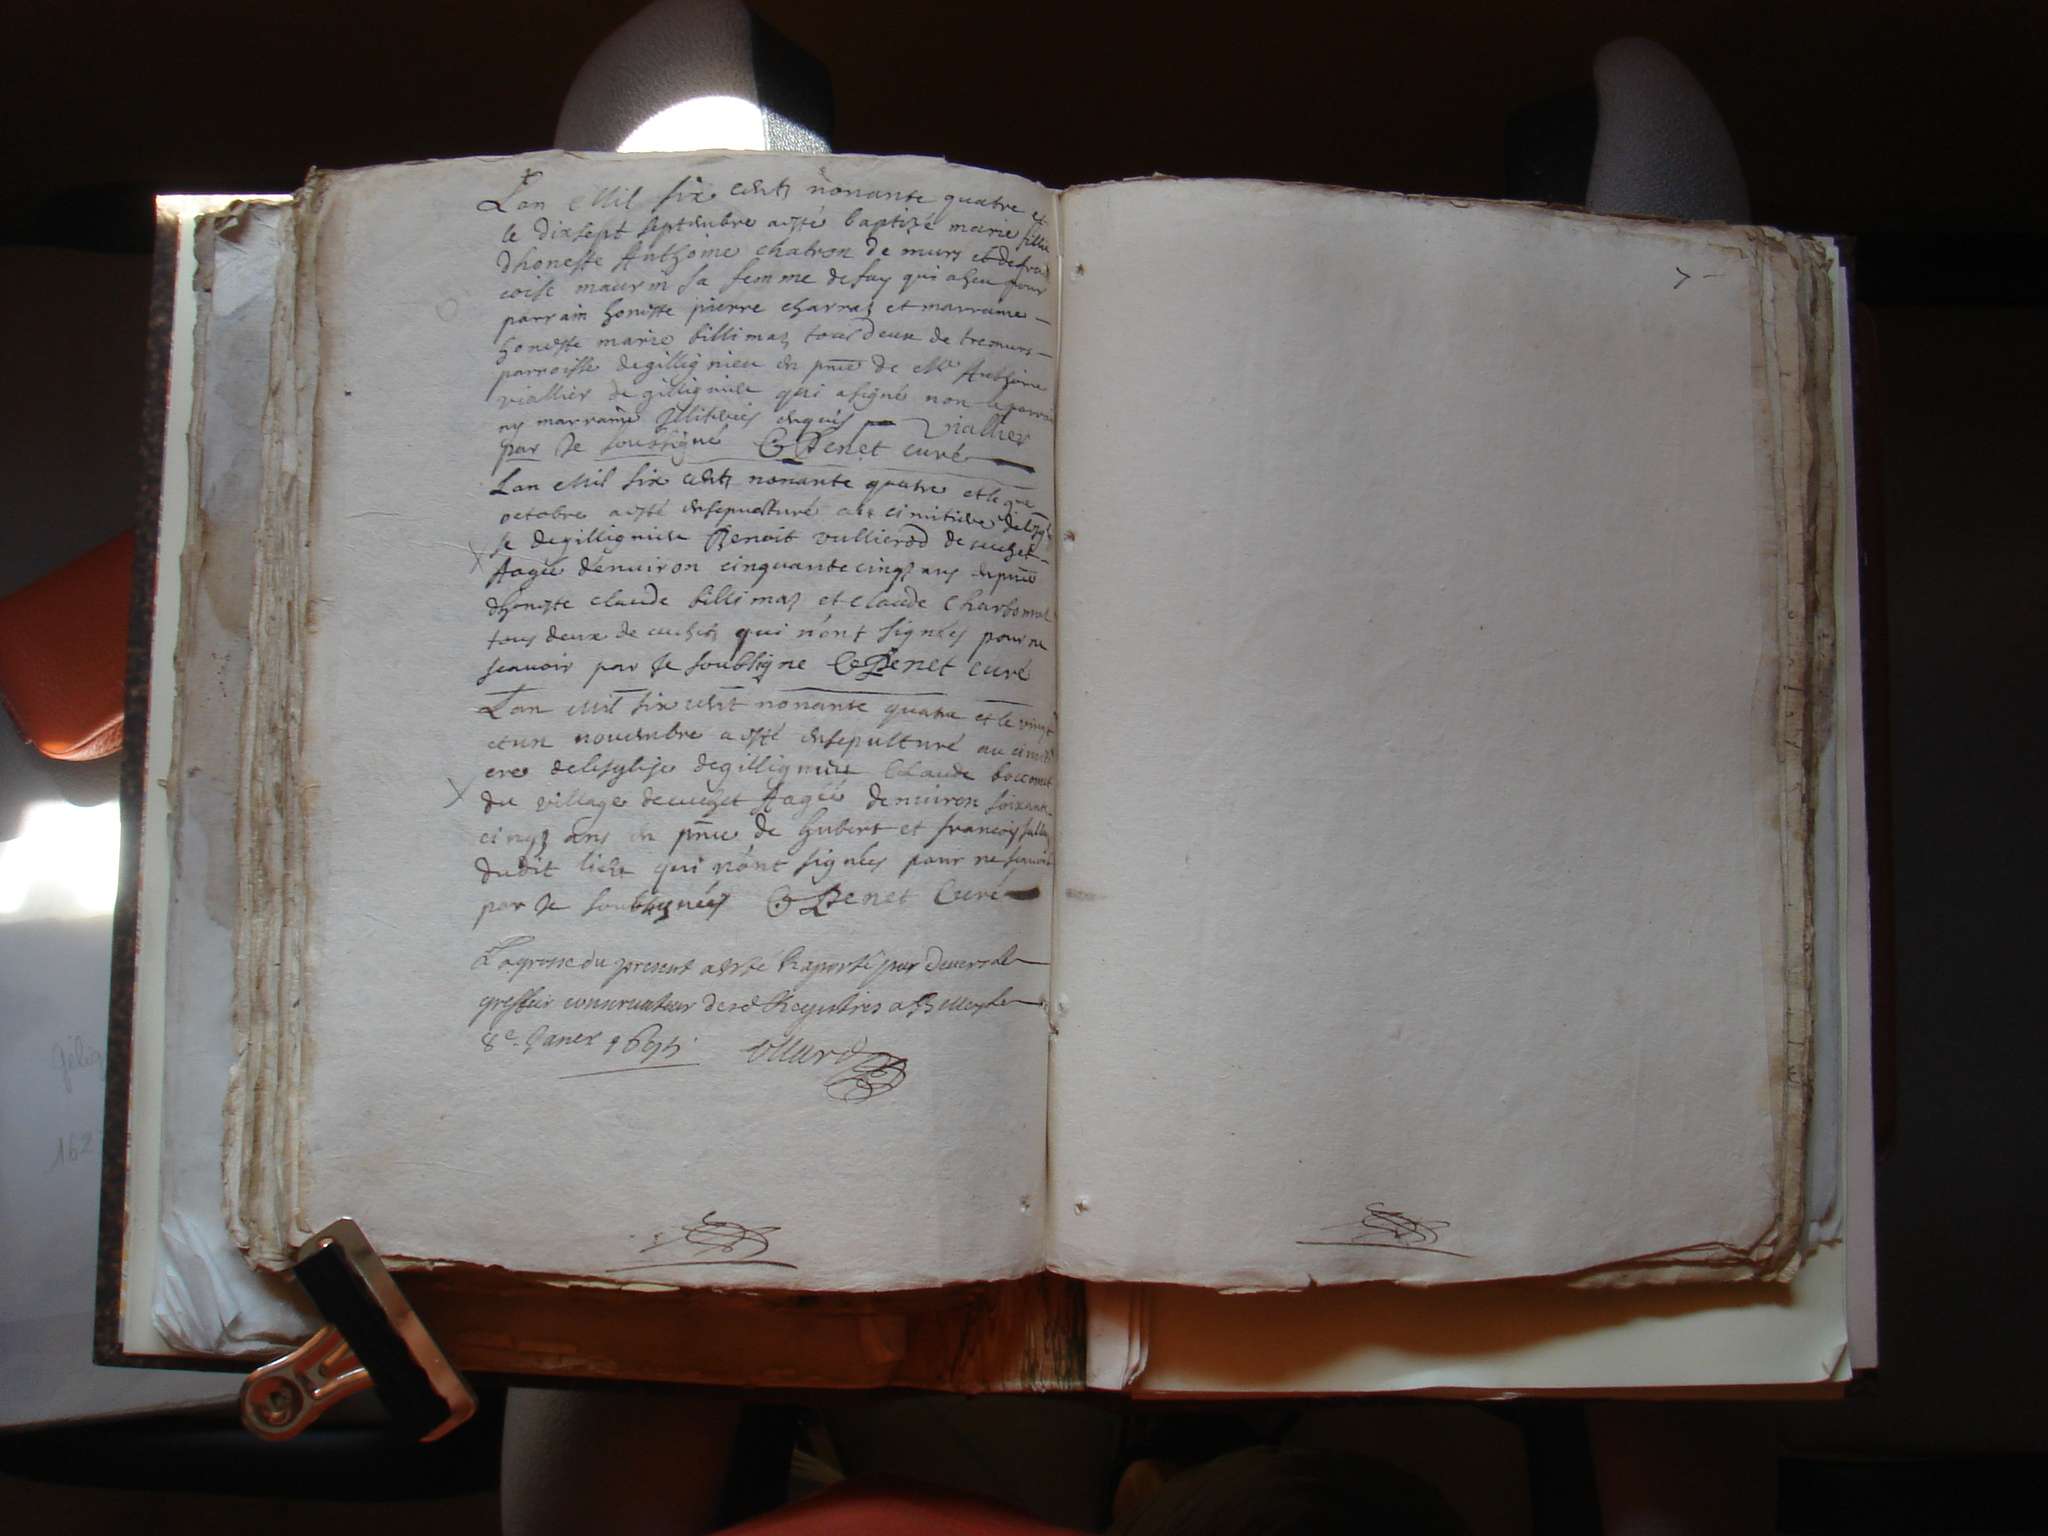 Lan Mil six cents nonante quatre et
le dixsept septembre a esté baptizé marie fillie
dhoneste Anthoine chatron de murs et de fran
coise maurin sa femme de fay qui a heu pour
parrain honeste pierre charraz et marraine
honeste marie billimaz tous deux de tremurs
parroisse de gillignieu en pnce de Me Anthoine
viallier de gillignieu qui a signé non le parrain
ny marraine illiteres enquis Viallier
par Je soussigné C Benet curé
Lan Mil six cents nonante quatre et le
octobre a esté ensepulturé au cimitiere de lesgli
se de gillignieu Benoit vullierod de cuchet
Aagée denuiron cinquantecinq ans en pnce
dhoneste claude billimaz et claude Charbonnet
tous deux de cuchet qui n'ont signées pour ne
scauoir par Je soubsigne C Benet curé
Lan Mil six cent nonante quatre et le vingt
et un nouembre a esté ensepulturé au cimiti
ere de lesglise de gillignieu Claude boccomet
du village de cuchet Aagée denuiron soixante
cinq ans en pnce de hubert et francois
dudit lieu qui n'ont signées pour ne scauoir
par Je soubsignées C Benet Curé
La grosse du present a esté Raportée par deuers le
greffier conseruateur desd Registres a Belley le
8e Janer 1695
7